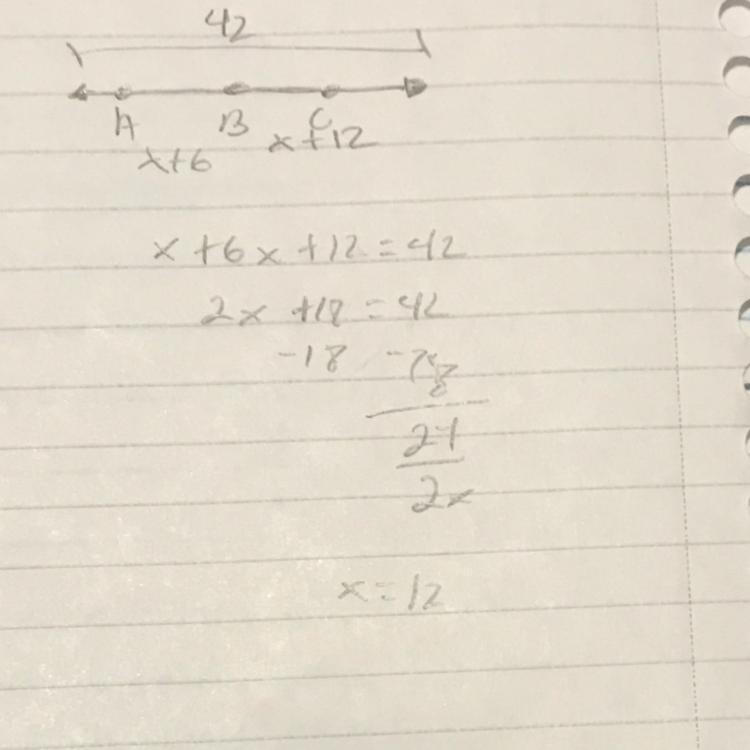 42
A B C
x+6 x+12
x+6x+12=42
2x+18=42
-18 -18
24
2x
x=12